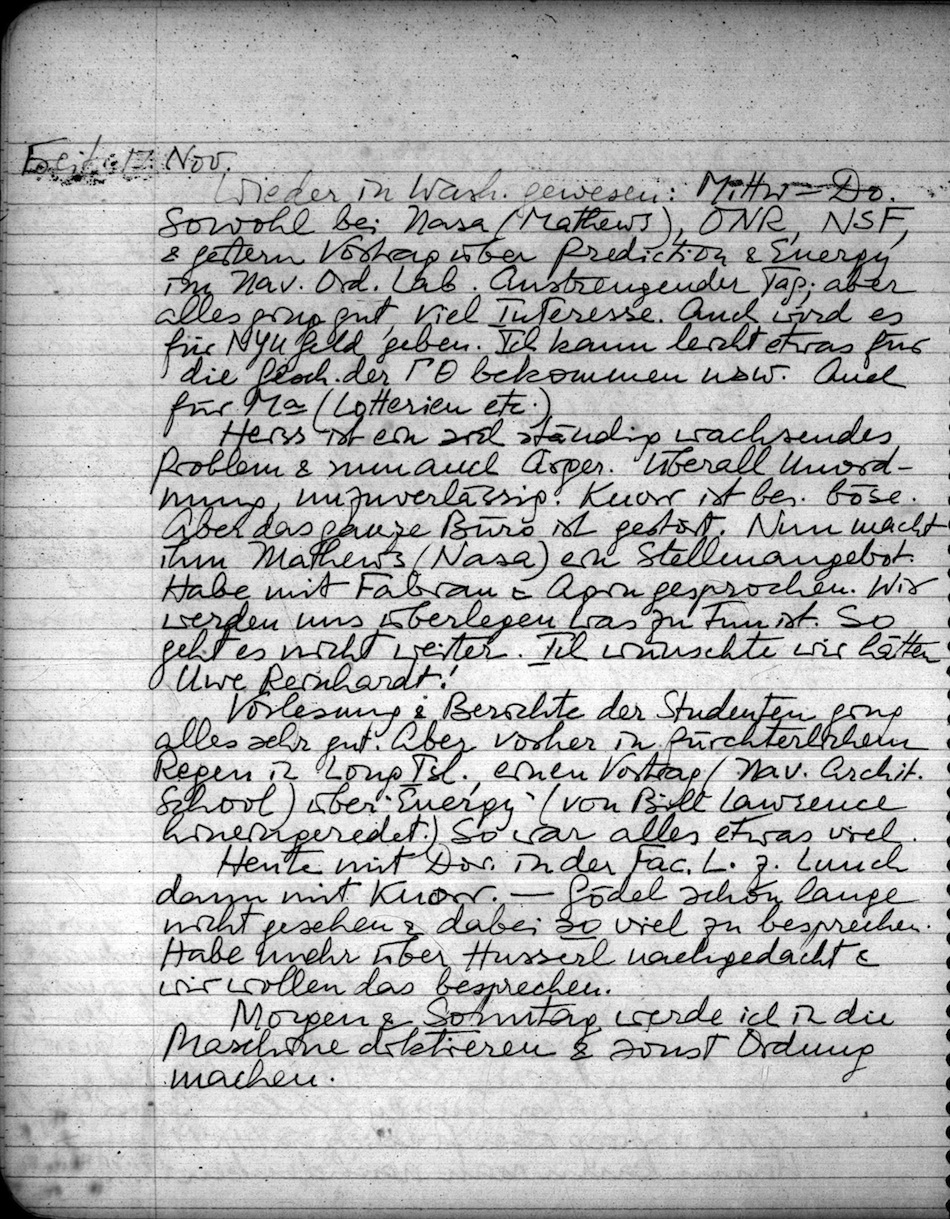 Freitag 17. Nov.
Wieder in Wash. gewesen: Mittw–Do.
Sowohl bei Nasa (Mathews), ONR, NSF,
& gestern Vortrag über Prediction & Energy
im Nav. Ord. Lab. Anstrengender Tag; aber
alles ging gut, viel Interesse. Auch wird es
für NYU Geld geben. Ich kann leicht etwas für
die Gesch. der ΓΘ bekommen usw. Auch
für Ma (Lotterien etc.)
Heiss ist ein sich ständig wachsendes
Problem & nun auch Ärger. Überall Unord-
nung, unzuverlässig. Knorr ist bes. böse.
Aber das ganze Büro ist gestört. Nun macht
ihm Mathews (Nasa) ein Stellenangebot.
Habe mit Fabian & Agin gesprochen. Wir
werden uns überlegen was zu tun ist. So
geht es nicht weiter. Ich wünschte wir hätten
Uwe Reinhardt!
Vorlesung & Berichte der Studenten ging
alles sehr gut. Aber vorher in fürchterlichem
Regen in Long Isl., einen Vortrag (Nav. Archit.
School) über "Energy" (von Bill Lawrence
hineingeredet.) So war alles etwas viel.
Heute mit Dor. in der Fac. L. z. Lunch
dann mit Knorr. — Gödel schon lange
nicht gesehen & dabei so viel zu besprechen.
Habe mehr über Husserl nachgedacht &
wir wollen das besprechen.
Morgen & Sonntag werde ich in die
Maschine diktieren & sonst Ordnung
machen.